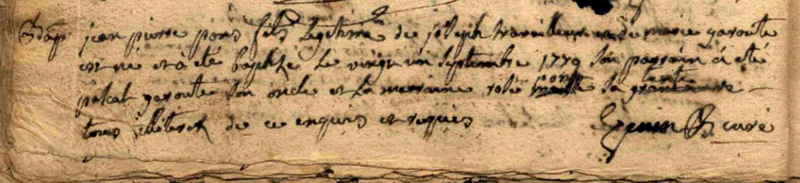 jean pierre pons fils legitime de joseph travailleur et de marie garoute
est né et a été baptisé le vingt un septembre 1779 son parrain a été
pascal garoute son oncle et la marraine rose pons sa tante
tous illiterés de ce enquis et requis curé